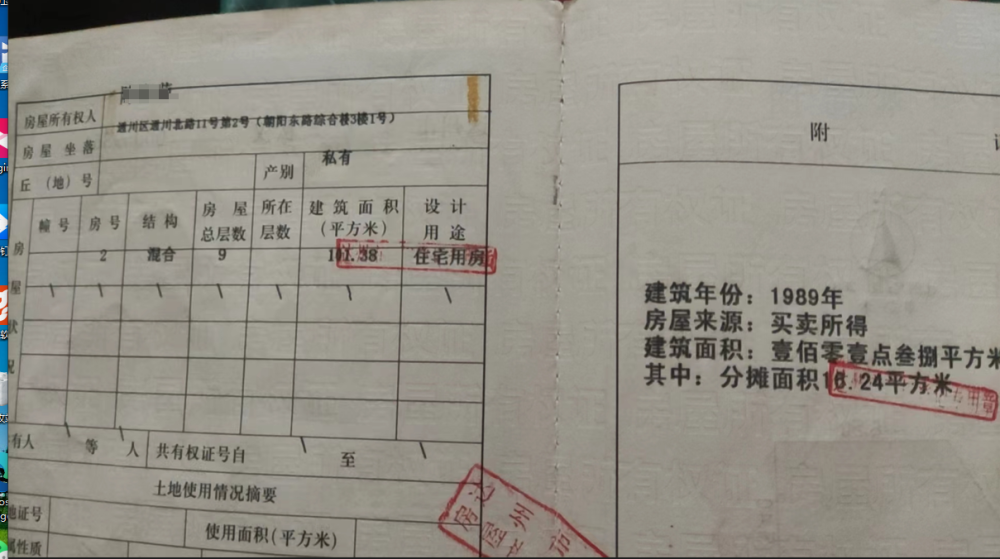 房屋所有权人
通川区通川北路11号第2号（朝阳东路综合楼3楼1号）
房屋 坐落
丘（地）号
产别
私有
幢号 房号 结构 房屋总层数 所在层数 建筑面积（平方米） 设计用途
2 混合 9 101.38 住宅用房
房屋状况
有人 等 人 共有权证号自 至
土地使用情况摘要
地证号 使用面积(平方米)
属性质
附
建筑年份：1989年
房屋来源：买卖所得
建筑面积：壹佰零壹点叁捌平方米
其中：分摊面积10.24平方米